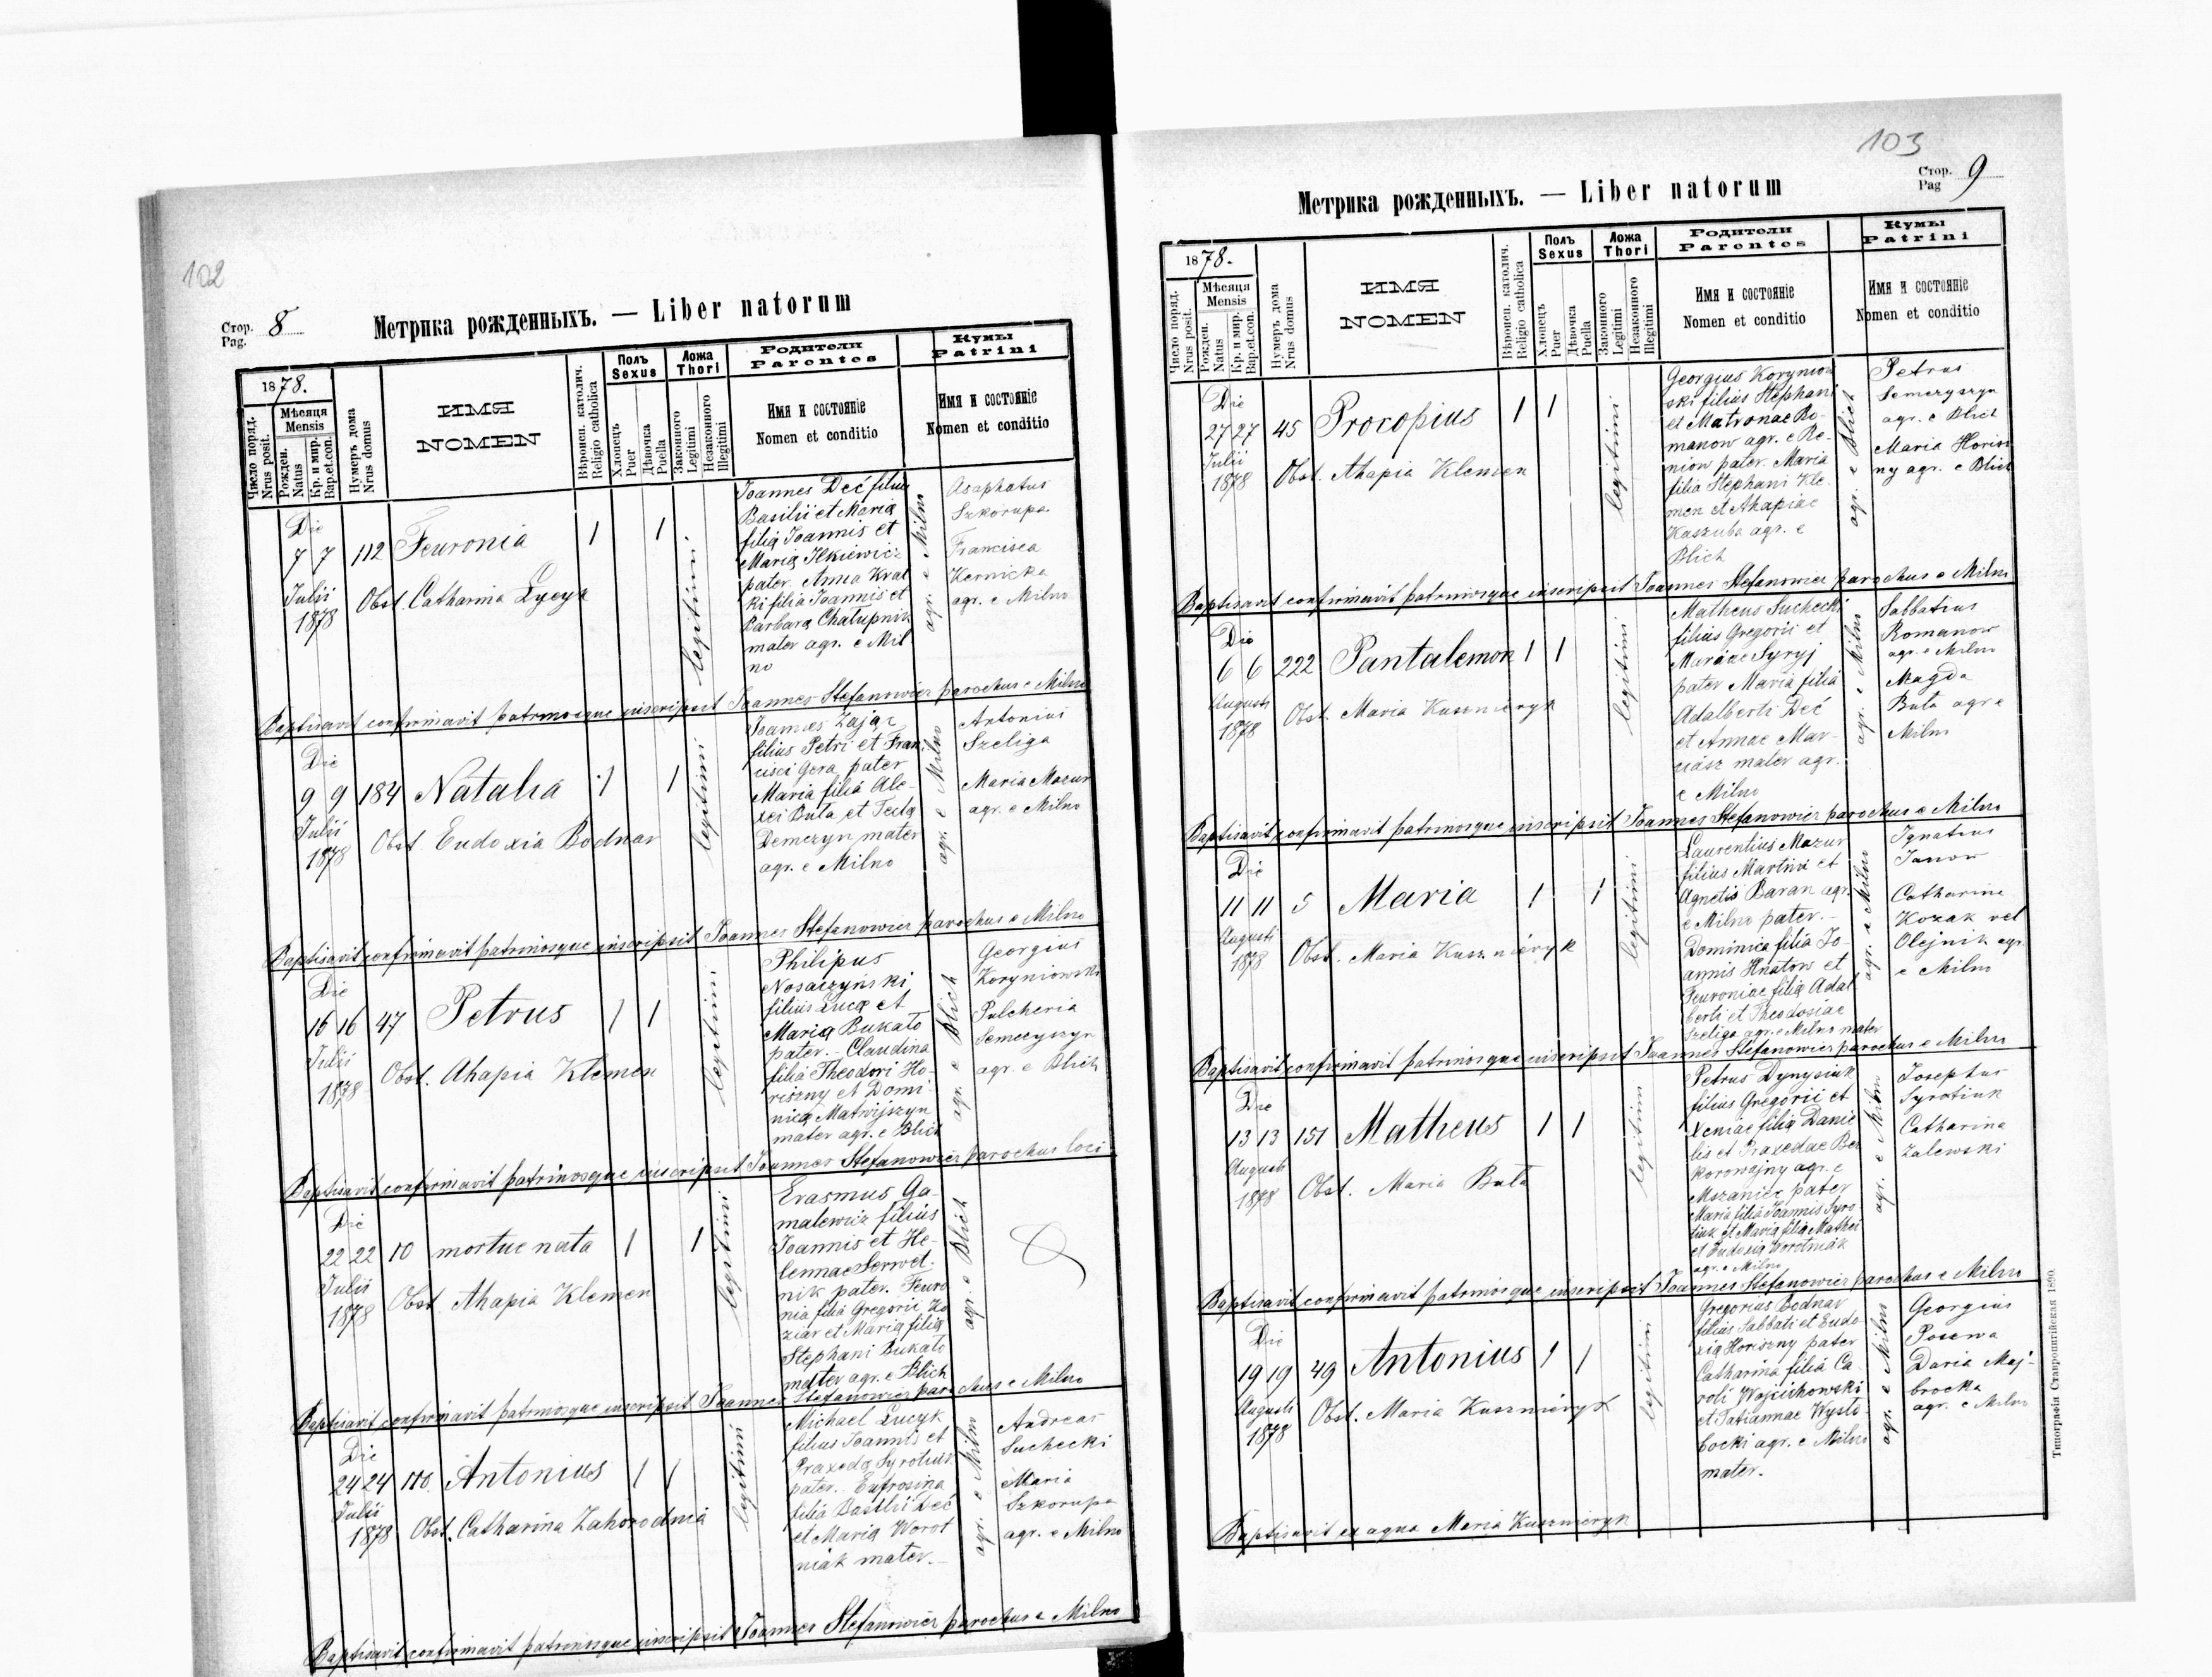 102
Стор. Pag. 8
Метрика рожденныхъ. — Liber natorum
1878.
Число поряд. Nrus posit.
Мѣсяця Mensis
Рожден. Natus
Кр. и мир. Bap.et.con.
Нумеръ дома Nrus domus
ИМЯ
NOMEN
Вѣроисп. католич. Religio catholica
Полъ Sexus
Хлопецъ Puer
Дѣвочка Puella
Ложа Thori
Законного Legitimi
Незаконного Illegitimi
Родители
Parentes
Имя и состояніе
Nomen et conditio
Кумы
Patrini
Имя и состояніе
Nomen et conditio
Die
7 7 112 Feuronia 1 1
Julii
1878
Obst. Catharina Łycyk
legitimi
Joannes Deć filius
Basilii et Maria
filia Joannis et
Maria Ilkiewicz
pater. Anna Kral
ki filia Joannis et
Barbara Chałupnik
mater agr. e Mil
no
agr. e Milno
Asaphatus
Szkorupa
Francisca
Kernicka
agr. e Milno
Baptisavit confirmavit patrinosque inscripsit Joannes Stefanowicz parochus e Milno
Die
9 9 184 Natalia 1 1
Julii
1878
Obst. Eudoxia Bodnar
legitimi
Joannes Zając
filius Petri et Fran
cisci Gera pater
Maria filia Ale-
xei Buta et Tecla
Demczyn mater
agr. e Milno
agr. e Milno
Antonius
Szeliga
Maria Mazur
agr. e Milno
Baptisavit confirmavit patrinosque inscripsit Joannes Stefanowicz parochus e Milno
Die
16 16 47 Petrus 1 1
Julii
1878
Obst. Ahapia Klemen
legitimi
Philipus
Nosaczyński
filius Luca et
Maria Bukato
pater. - Claudina
filia Theodori Ho-
riszny et Domi-
nica Matwijszyn
mater agr. e Blich
agr. e Blich
Georgius
Koryniowski
Pulcheria
Semeczyszyn
agr. e Blich
Baptisavit confirmavit patrinosque inscripsit Joannes Stefanowicz parochus loci
Die
22 22 10 mortue nata 1 1
Julii
1878
Obst. Ahapia Klemen
legitimi
Erasmus Ga-
malewicz filius
Joannis et He-
lennae Serwet-
nik pater. Feuro
nia filia Gregorii Ko
ziar et Maria filia
Stephani Bukato
mater agr. e Blich
agr. e Blich
Baptisavit confirmavit patrinosque inscripsit Joannes Stefanowicz parochus e Milno
Die
24 24 170 Antonius 1 1
Julii
1878
Obst. Catharina Zahorodnia
legitimi
Michael Łucyk
filius Joannis et
Praxeda Syrotiuk
pater. - Eufrosina
filia Basilii Deć
et Maria Worot
niak mater. -
agr. e Milno
Andreas
Suchecki
Maria
Szkorupa
agr. e Milno
Baptisavit confirmavit patrinosque inscripsit Joannes Stefanowicz parochus e Milno
103
Стор. Pag 9
Метрика рожденныхъ. — Liber natorum
1878.
Число поряд. Nrus posit.
Мѣсяця Mensis
Рожден. Natus
Кр. и мир. Bap.et.con.
Нумеръ дома Nrus domus
ИМЯ
NOMEN
Вѣроисп. католич. Religio catholica
Полъ Sexus
Хлопецъ Puer
Дѣвочка Puella
Ложа Thori
Законного Legitimi
Незаконного Illegitimi
Родители
Parentes
Имя и состояніе
Nomen et conditio
Кумы
Patrini
Имя и состояніе
Nomen et conditio
Die
27 27 45 Procopius 1 1
Julii
1878
Obst. Ahapia Klemen
legitimi
Georgius Koryniow
ski filius Stephani
et Matronae Ro-
manow agr. e Re-
niow pater. Maria
filia Stephani Kle-
men et Ahapiae
Kaszuba agr. e
Blich
agr. e Blich
Petrus
Semczyszyn
agr. e Blich
Maria Horisz
ny agr. e Blich
Baptisavit confirmavit patrinosque inscripsit Joannes Stefanowicz parochus e Milno
Die
6 6 222 Pantalemon 1 1
Augusti
1878
Obst. Maria Kuszniéryk
legitimi
Matheus Suchecki
filius Gregorii et
Mariae Syryj
pater Maria filia
Adalberti Deć
et Annae Mar-
ciász mater agr.
e Milno
agr. e Milno
Sabbatius
Romanow
agr. e Milno
Magda
Buta agr e
Milno
Baptisavit confirmavit patrinosque inscripsit Joannes Stefanowicz parochus e Milno
Die
11 11 5 Maria 1 1
Augusti
1878
Obst. Maria Kuszniéryk
legitimi
Laurentius Mazur
filius Martini et
Agnetis Baran agr.
e Milno pater. -
Dominica filia Jo-
annis Hnatow et
Feuroniae filia Adal
berti et Theodosiae
Szeliga agr. e Milno mater
agr. e Milno
Ignatius
Janow
Catharina
Kozak vel
Olejnik agr.
e Milno
Baptisavit confirmavit patrinosque inscripsit Joannes Stefanowicz parochus e Milno
Die
13 13 151 Matheus 1 1
Augusti
1878
Obst. Maria Buta
legitimi
Petrus Dynysiuk
filius Gregorii et
Xeniae filia Danie
lis et Praxedae Bez
korowajny agr. e
Mszaniec pater
Maria filia Joannis Syro-
tiuk et Maria filia Mathei
et Eudoxia Worotniak
agr. e Milno
agr. e Milno
Josephus
Syrotiuk
Catharina
Zalewski
Baptisavit confirmavit patrinosque inscripsit Joannes Stefanowicz parochus e Milno
Die
19 19 49 Antonius 1 1
Augusti
1878
Obst. Maria Kuszniéryk
legitimi
Gregorius Bodnar
filius Sabbati et Eudo
xia Horiszny pater
Catharina filia Ca-
roli Wojcichowski
et Tatiannae Wysło-
bocki agr. e Milno
mater.
agr. e Milno
Georgius
Posewa
Daria Maj-
brocka
agr. e Milno
Baptisavit ex aqua Maria Kuszniéryk
Типографія Ставропигійская 1890.